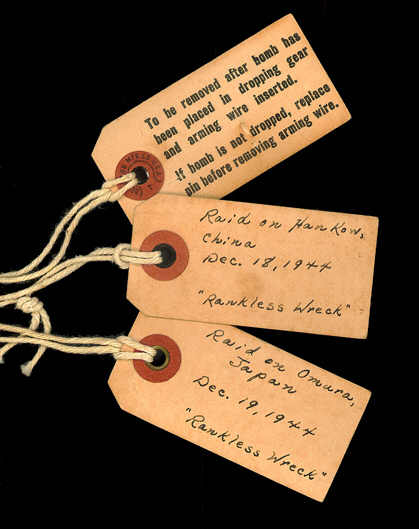 To be removed after bomb has
been placed in dropping gear
and arming wire inserted.
If bomb is not dropped, replace
pin before removing arming wire.
Raid on Hankow,
China
Dec. 18, 1944
"Rankless Wreck"
Raid on Omura,
Japan
Dec. 19, 1944
"Rankless Wreck"